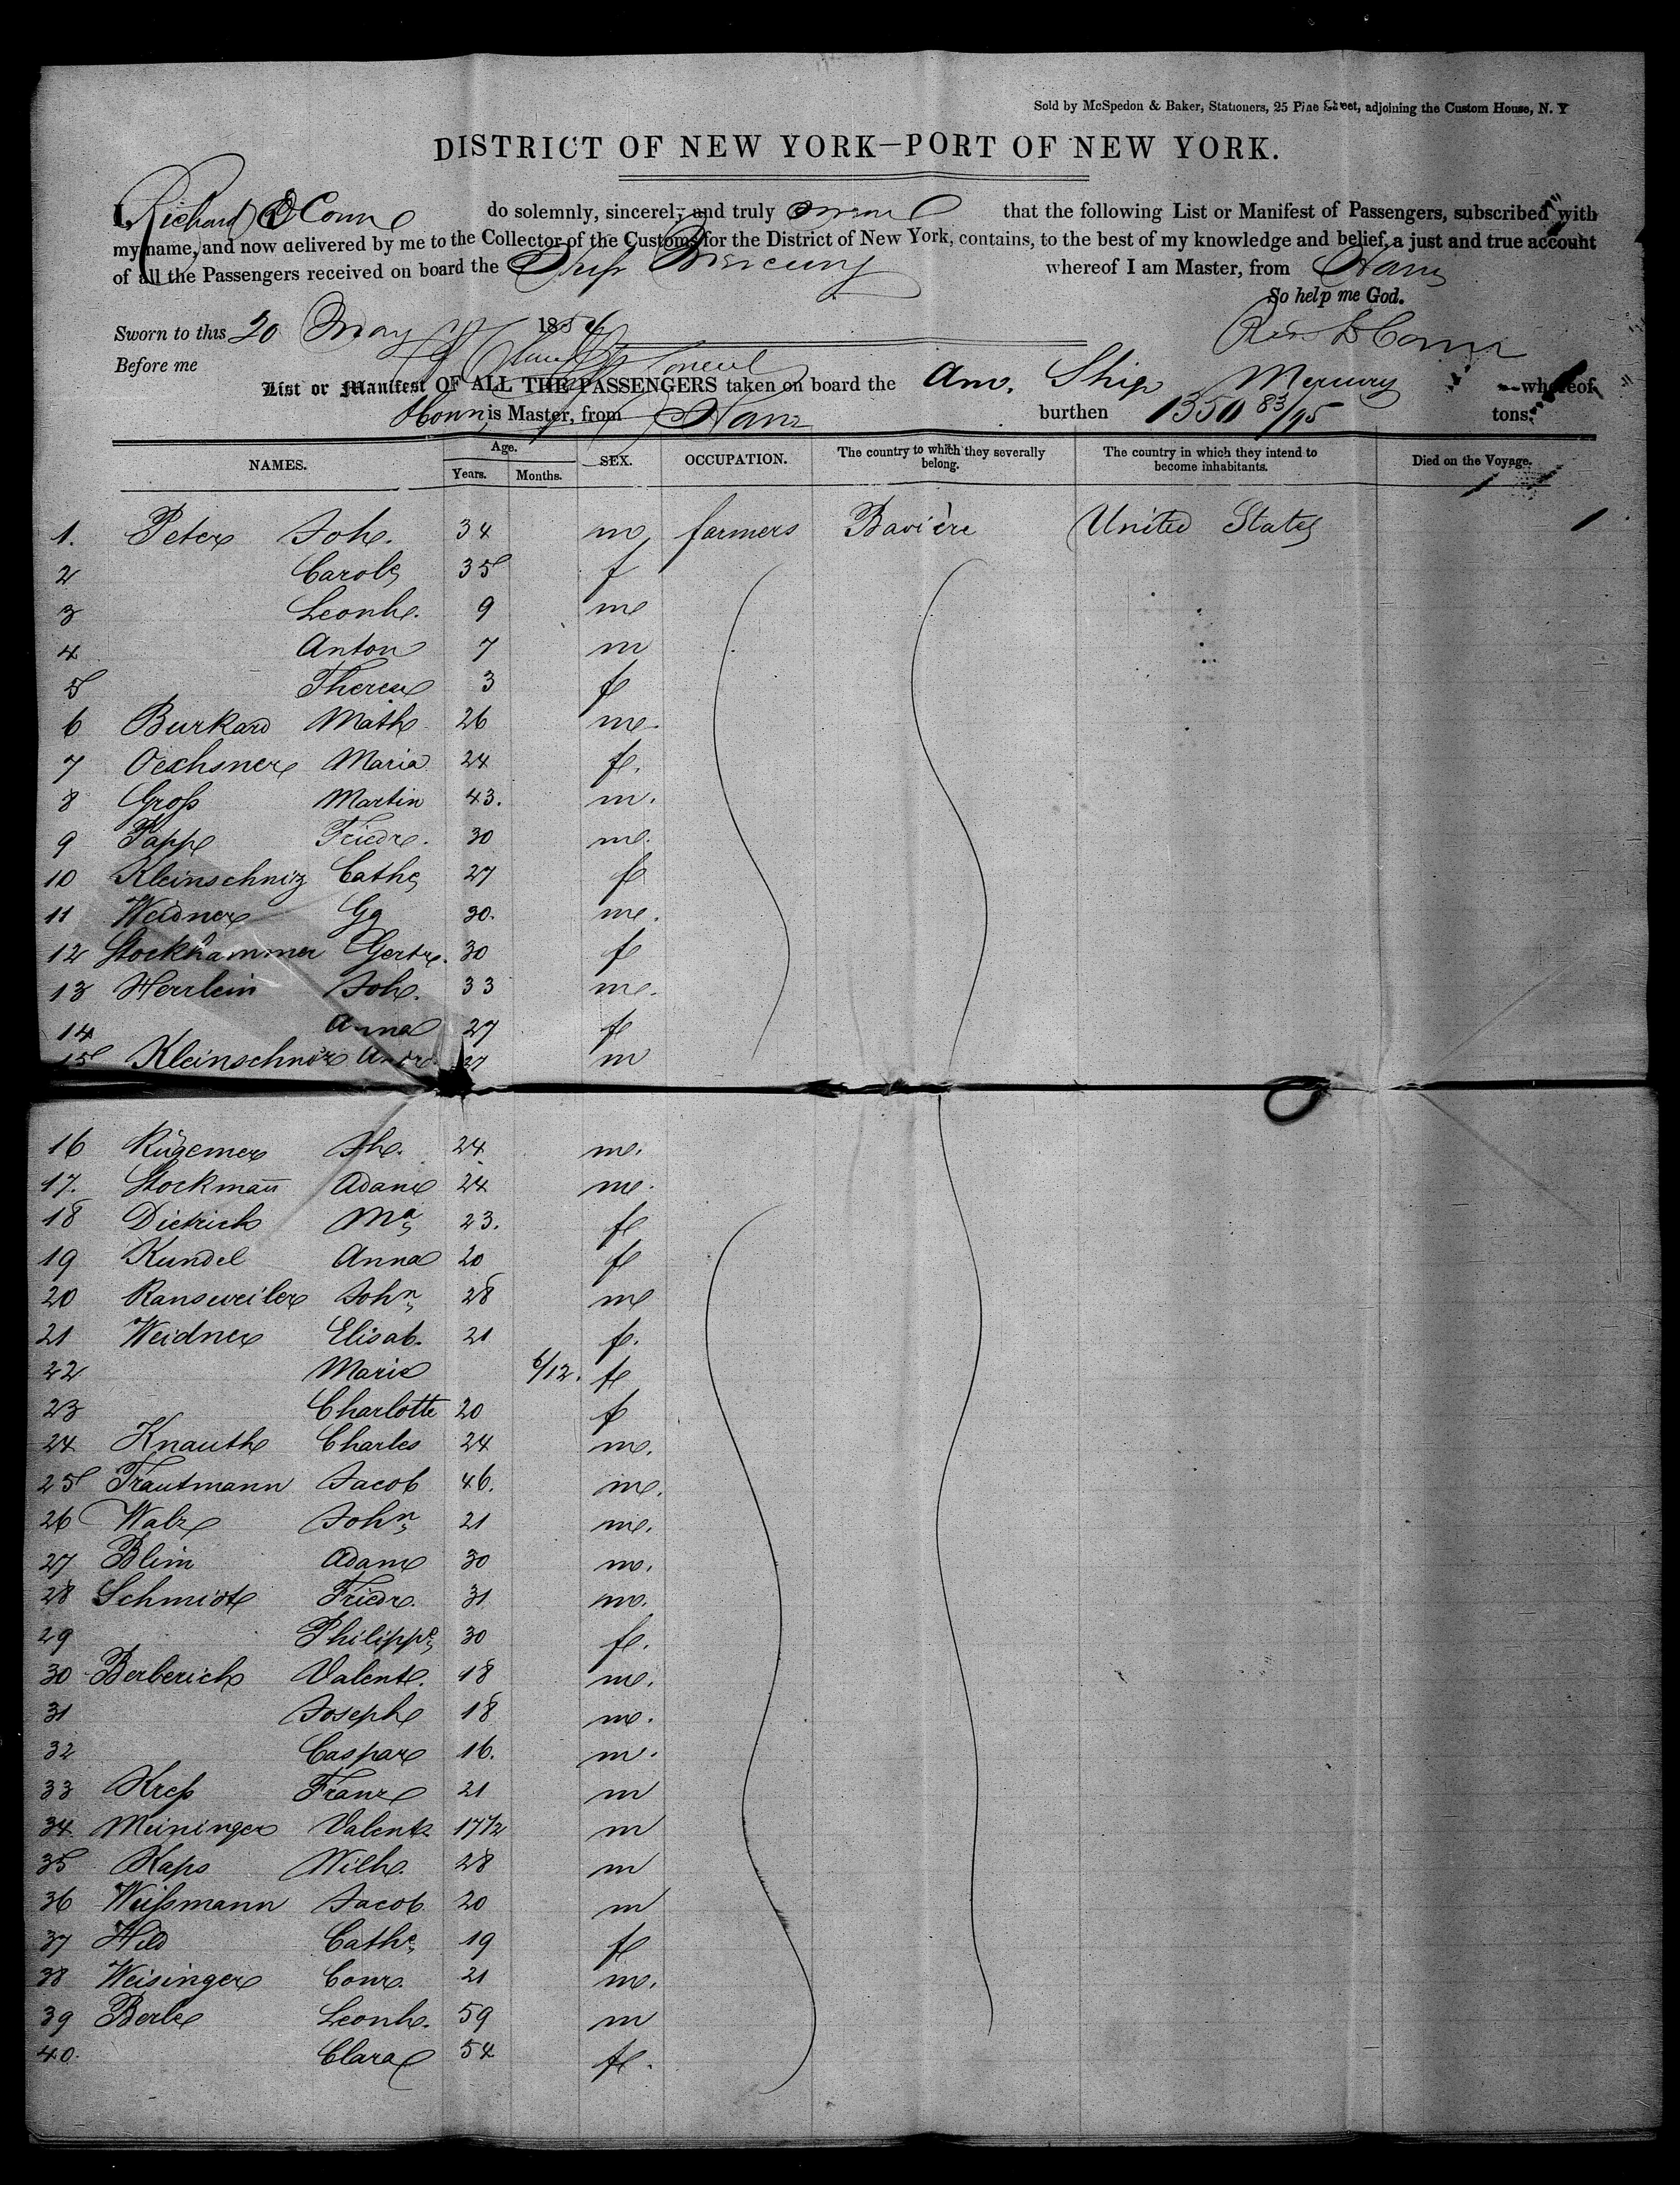 Sold by McSpedon & Baker, Stationers, 25 Pine Street, adjoining the Custom House, N. Y
DISTRICT OF NEW YORK—PORT OF NEW YORK.
I, Richard D Conn do solemnly, sincerely and truly swear that the following List or Manifest of Passengers, subscribed with
my name, and now delivered by me to the Collector of the Customs for the District of New York, contains, to the best of my knowledge and belief, a just and true account
of all the Passengers received on board the Ship Mercury whereof I am Master, from Havre
So help me God.
Sworn to this 20 May 1854
Before me
List or Manifest OF ALL THE PASSENGERS taken on board the Am. Ship Mercury whereof
Conn is Master, from Havre burthen 1350 83/95 tons.
NAMES. Age. Years. Months. SEX. OCCUPATION. The country to which they severally belong. The country in which they intend to become inhabitants. Died on the Voyage.
1. Peter Joh. 34 m farmers Bavière United States
2 Carole 35 f
3 Leonh. 9 m
4 Anton 7 m
5 Therese 3 f
6 Burkard Math 26 m.
7 Oechsner Maria 24 f.
8 Groß Martin 43. m.
9 Pappe Friedr. 30 m.
10 Kleinschnitz Cathe 27 f
11 Weidner Gg 30. m.
12 Stockhammer Gertr. 30 f
13 Herrlein Joh. 33 m.
14 Anna 27 f
15 Kleinschnitz Andr. 27 m
16 24 m.
17. Stockmañ Adam 24 m.
18 Dietrich Ma 23. f
19 Kundel Anna 20 f
20 Ransweiler John 28 m
21 Weidner Elisab. 21 f.
22 Maria 6/12. f
23 Charlotte 20 f
24 Knauth Charles 24 m.
25 Trautmann Jacob 46. m.
26 Walz John 21 m.
27 Blim Adam 30 m.
28 Schmidt Friedr. 31 m.
29 Philippe 30 f.
30 Berberich Valent. 18 m.
31 Joseph 18 m.
32 Caspar 16. m.
33 Kreß Franz 21 m
34 Meininger Valent. 17 1/2 m
35 Kaps Wilh. 28 m
36 Weißmann Jacob 20 m
37 Hild Cathe 19 f
38 Weisinger Conr. 21 m.
39 Berle Leonh. 59 m
40. Clara 54 f.